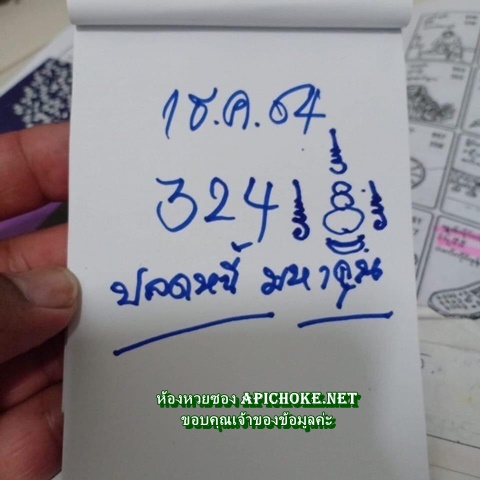 1 ธ.ค. 64
324
ปลดหนี้ มหาหุ้น
ห้องหวยซอง APICHOKE.NET
ขอบคุณเจ้าของข้อมูลค่ะ